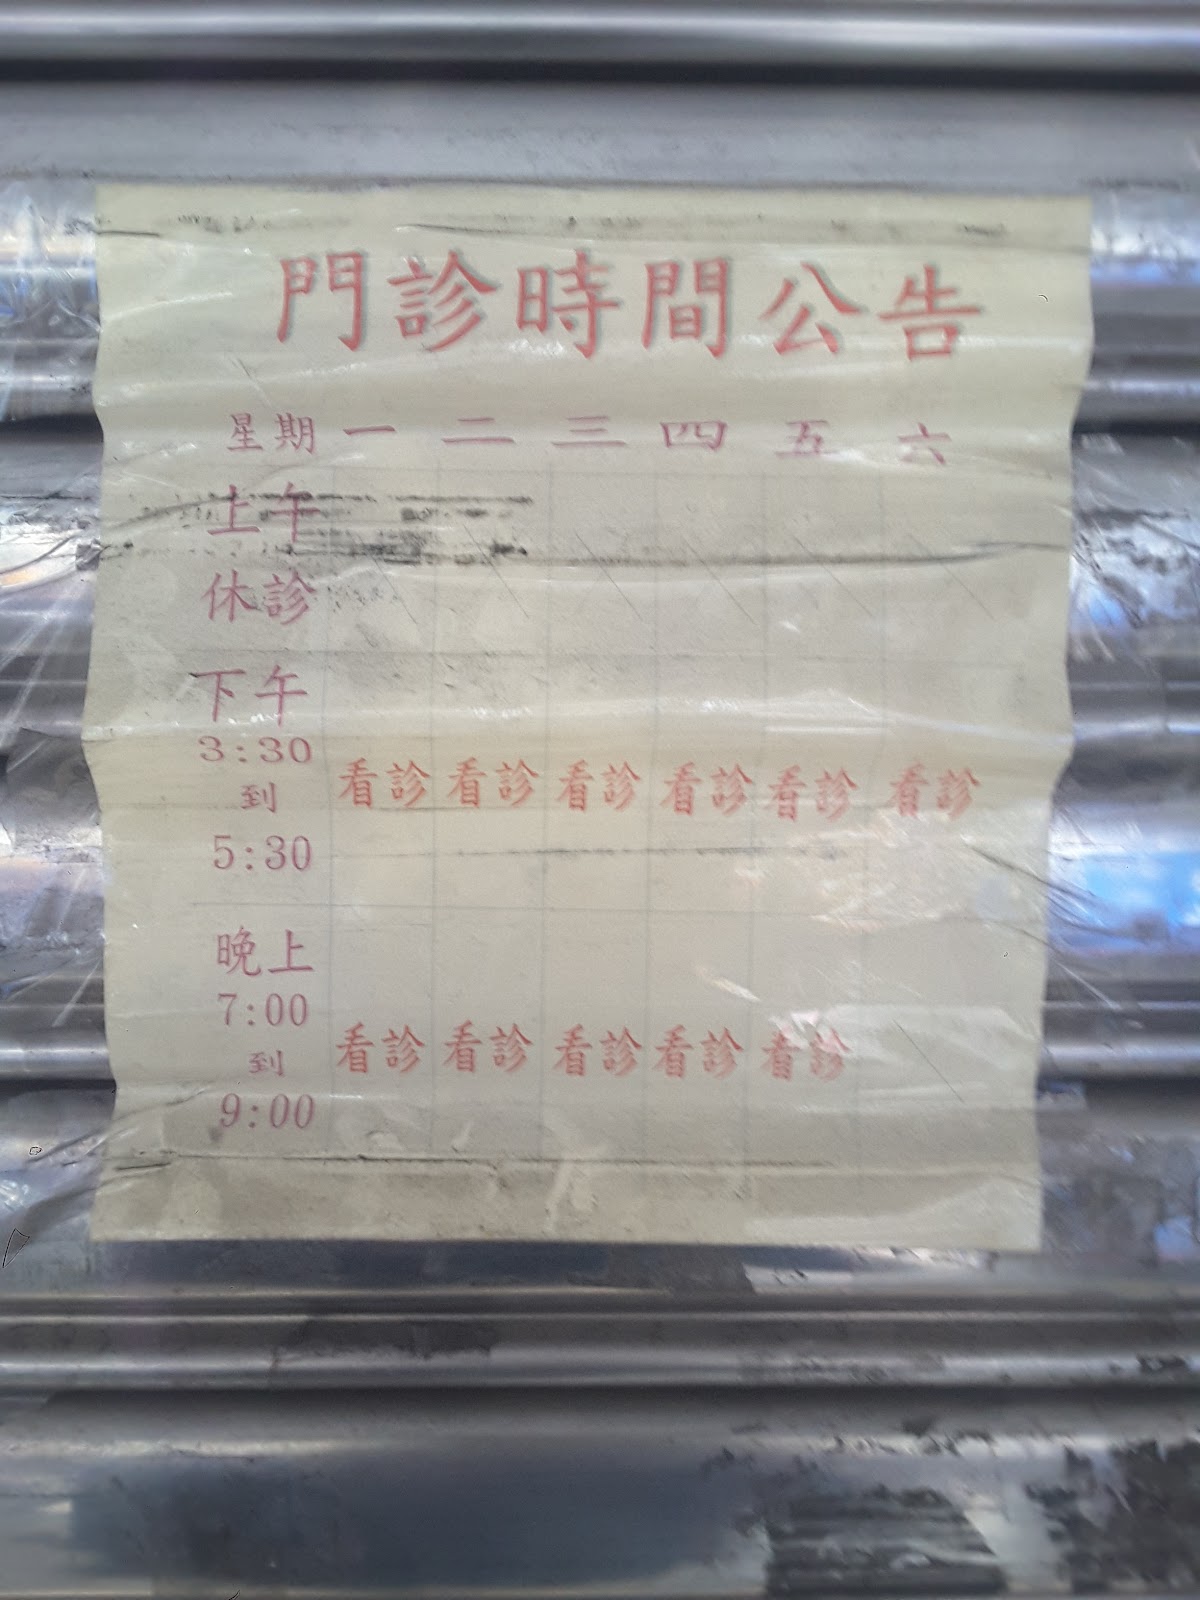 門診時間公告
星期 一 二 三 四 五 六
上午
休診
下午
3:30
到
5:30
看診 看診 看診 看診 看診 看診
晚上
7:00
到
9:00
看診 看診 看診 看診 看診